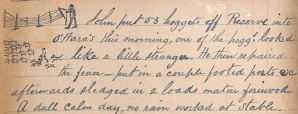 John put 53 hoggets off Reserve into
O'Hara's this morning, one of the hoggs looked
like a little stranger. He then repaired
the fence - put in a couple footed posts &c
afterwards sledged in 2 loads matai firewood
A dull calm day, no rain worked at Stable.